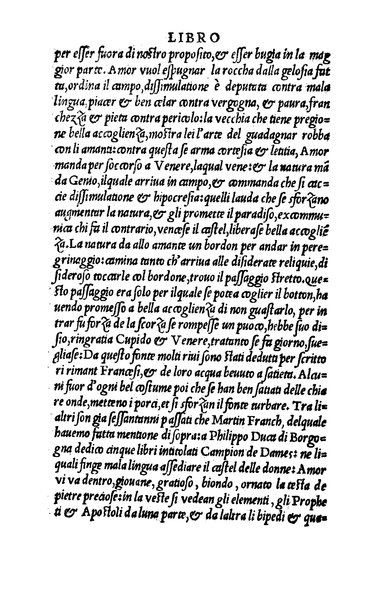 LIBRO
per esser fuora di nostro proposito, & esser bugia in la mag
gior parte. Amor vuol espugnar la roccha dalla gelosia fat
ta, ordina il campo, dissimulatione è deputata contra mala
lingua, piacer & ben celar contra vergogna, & paura, fran
chezza & pieta contra pericolo: la vecchia che tiene pregio=
ne bella accoglienza, mostra lei l'arte del guadagnar robba
con li amanti: contra questa se arma cortesia & letitia, Amor
manda per soccorso a Venere, laqual vene: & la natura mā
da Genio, ilquale arriua in campo, & commanda che si cac=
cie dissimulatione & hipocresia: quelli lauda che se sforzano
augumentar la natura, & gli promette il paradiso, excommu=
nica chi fa il contrario, vencese il castel, liberase bella accoglié
za. La natura da allo amante un bordon per andar in pere=
grinaggio: camina tanto ch'arriua alle disiderate reliquie, di
sideroso toccarle col bordone, trouo il passaggio stretto. que=
sto passaggio era solo per ilquale se potea coglier il botton, ha
uendo promesso a bella accoglienza di non guastarlo, per in
trar fu forza de la scorza se rompesse un puoco, hebbe suo di=
sio, ringratia Cupido & Venere, tratanto se fa giorno, sue=
gliase: Da questo fonte molti riui sono stati dedutti per scritto
ri rimant Francesi, & de loro acqua beuuto a satieta. Alcu=
ni fuor d'ogni bel costume poi che se han ben satiati delle chia
re onde, metteno i porci, et si sforzan il fonte turbare. Tra li=
altri son gia sessantanni passati che Martin Franch, delquale
hauemo fatta mentione di sopra: a Philippo Duca di Borgo=
gna dedico cinque libri intitolati Campion de Dames: ne li=
quali finge mala lingua assediare il castel delle donne: Amor
vi va dentro, giouane, gratioso, biondo, ornato la testa de
pietre preciose: in la veste si vedean gli elementi, gli Prophe
ti & Apostoli da luna parte, & da laltra li bipedi & qua=